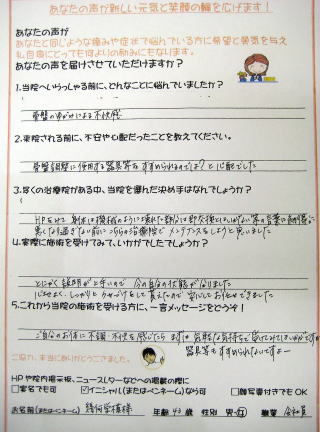 あなたの声が新しい元気と笑顔の輪を広げます！
あなたの声が
あなたと同じような痛みや症状で悩んでいる方に希望と勇気を与え
私自身にとっても何よりの励みにもなります。
あなたの声を届けさせていただけますか？
1.当院へいらっしゃる前に、どんなことに悩んでいましたか？
骨盤のゆがみによる不快感
2.来院される前に、不安や心配だったことを教えてください。
骨盤調整に使用する器具等をすすめられるのでは？と心配でした
3.多くの治療院がある中、当院を選んだ決め手はなんでしょうか？
HPをみて 身体は機械のように壊れた部分は即交換とはいかない
悪くなり過ぎない前にこちらの治療院でメンテナンスをしようと思いました
4.実際に施術を受けてみて、いかがでしたでしょうか？
とにかく説明が上手いので 今の自分の状態が
安心してお任せできました
5.これから当院の施術を受ける方に、一言メッセージをどうぞ！
ご自分のお体に不調・不快を感じたら まずは 気軽な気持ちで
器具等もすすめられないですよー
ご協力、本当にありがとうございました。
HPや院内掲示板、ニュースレターなどへの掲載の際に
□実名でも可 ☑イニシャル(またはペンネーム)なら可 □顔写真付きでもOK
お名前(またはペンネーム) 幾何学模様 年齢 43 歳 性別 男・女 職業 会社員